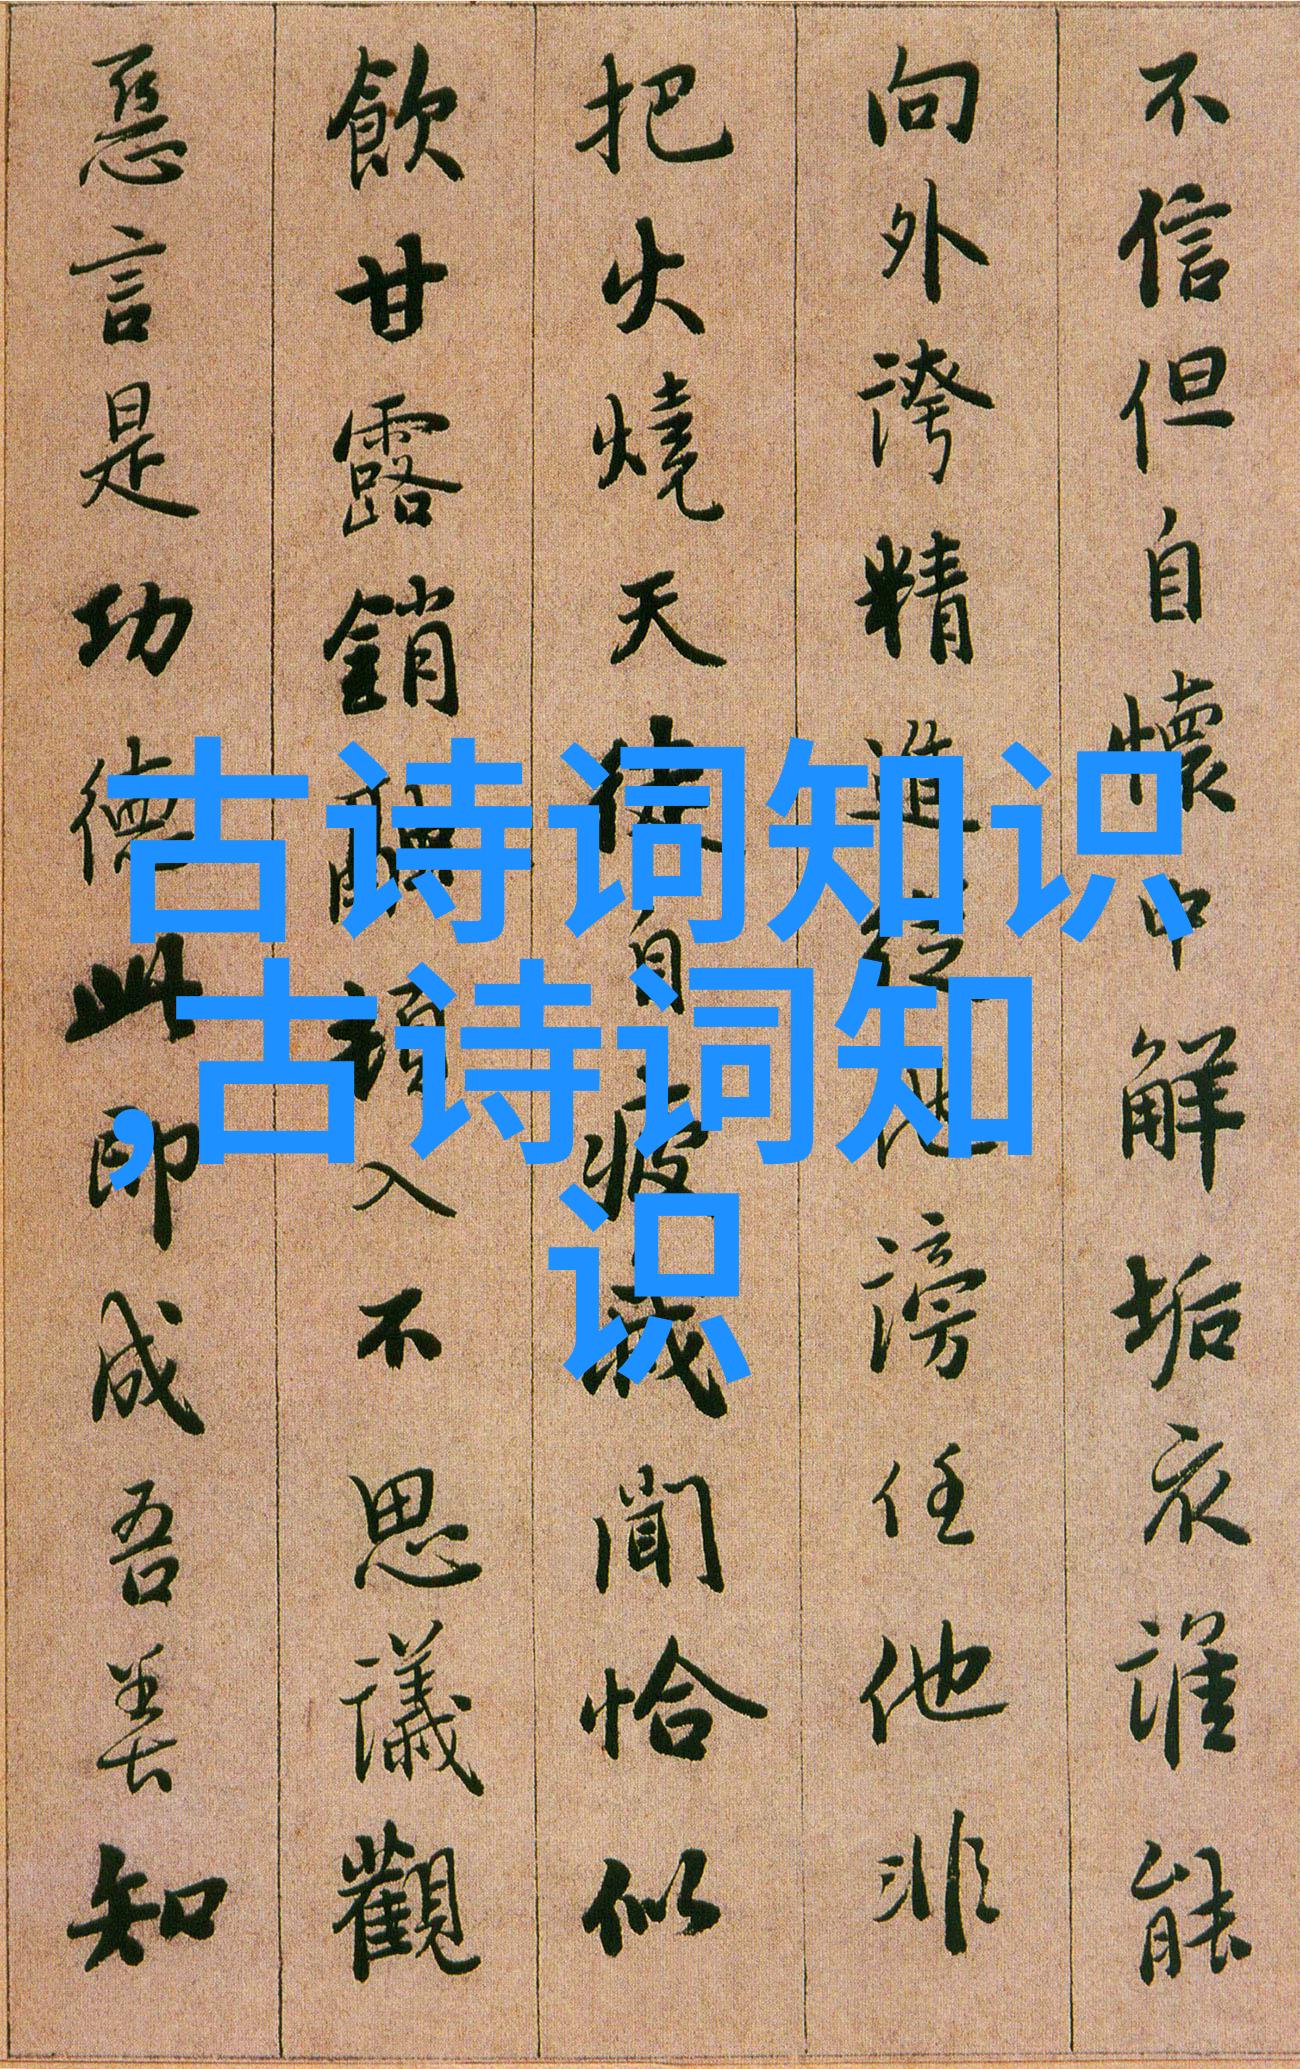 不信但自懷中解垢衣誰能
向外誇精進從他謗任他非
把火燒天徒自疲我聞恰似
飲甘露銷融頓入不思議觀
惡言是功德此即成吾善知
古诗词知识
,古诗词知
识